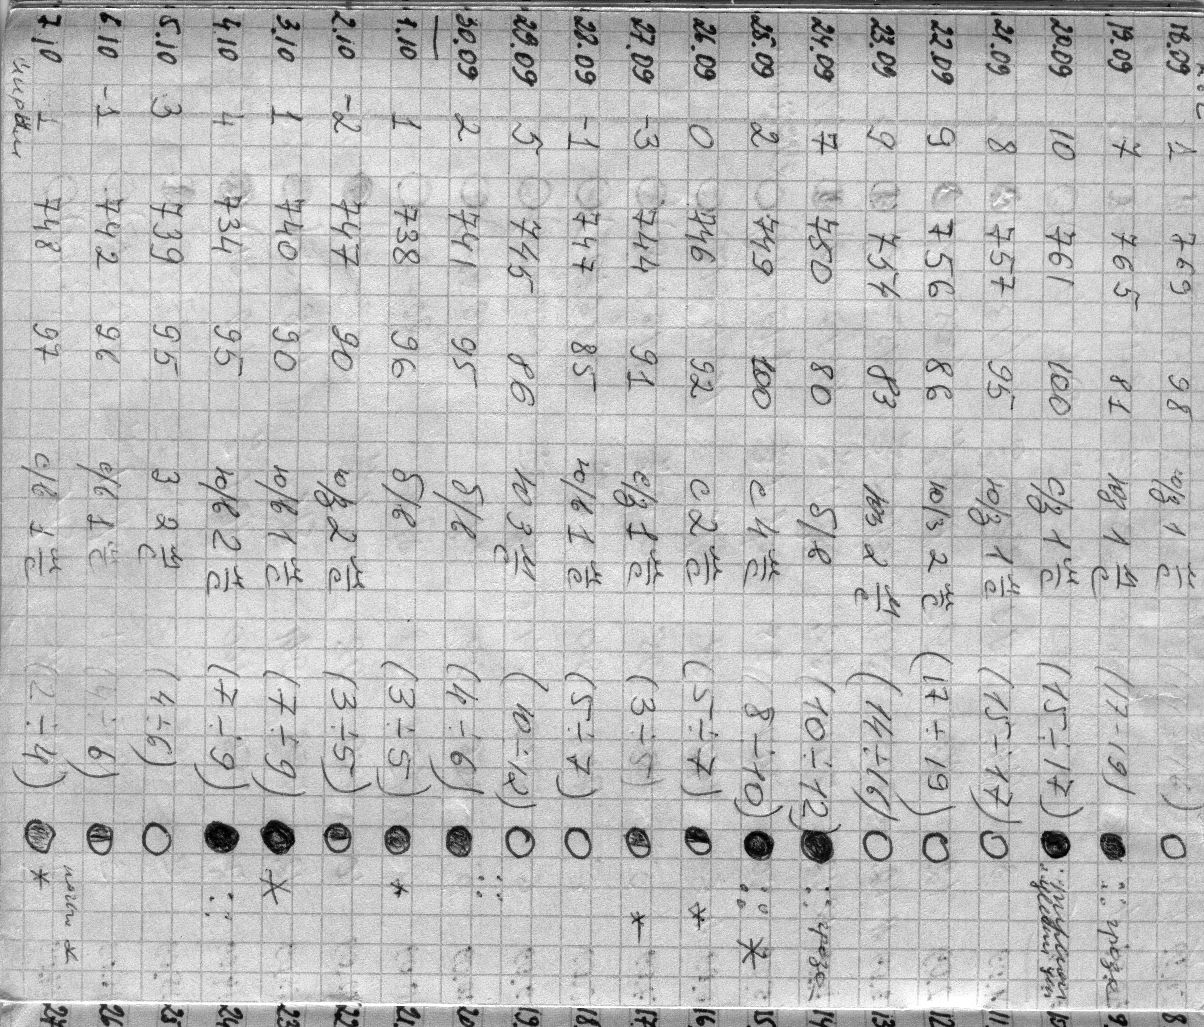 18.09 1 769 98 ю/з 1 м/с
19.09 7 765 81 юз 1 м/с (17-19) гроза
20.09 10 761 100 с/з 1 м/с (15÷17)
21.09 8 757 95 ю/з 1 м/с (15÷17)
22.09 9 756 86 ю/з 2 м/с (17÷19)
23.09 9 754 83 юз 2 м/с (14÷16)
24.09 7 750 80 б/в (10÷12) гроза
25.09 2 749 100 с 4 м/с (8÷10) *
26.09 0 746 92 с 2 м/с (5÷7) *
27.09 -3 744 91 с/з 1 м/с (3÷5) *
28.09 -1 747 85 ю/в 1 м/с (5÷7)
29.09 5 745 86 ю 3 м/с (10÷12)
30.09 2 741 95 б/в (4÷6)
1.10 1 738 96 б/в (3÷5) *
2.10 -2 747 90 ю/з 2 м/с (3÷5)
3.10 1 740 90 ю/в 1 м/с (7÷9) *
4.10 4 734 95 ю/в 2 м/с (7÷9)
5.10 3 739 95 З 2 м/с (4÷6)
6.10 -1 742 96 с/в 1 м/с (4÷6)
7.10 1 748 97 с/в 1 м/с (2÷4) *
8
9
10
11
12
13
14
15
16
17
18
19
20
21
22
23
24
25
26
27